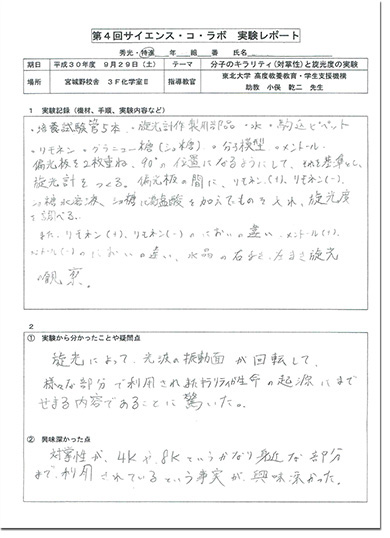 第4回サイエンス・コ・ラボ 実験レポート
秀光・特進 年 組 番 氏名
期日 平成30年度 9月29日(土) テーマ 分子のキラリティ(対掌性)と旋光度の実験
場所 宮城野校舎 3F化学室Ⅱ 指導教官 東北大学 高度教養教育・学生支援機構
助教 小俣 乾二 先生
1 実験記録(機材、手順、実験内容など)
・培養試験管5本 ・旋光計作製用部品 ・水 ・駒込ピペット
・リモネン ・グラニュー糖(ショ糖) ・分子模型 ・メントール
偏光板を2枚重ね、90°の位置になるようにして、それを基準とし、
旋光計をつくる。偏光板の間に、リモネン(+)、リモネン(-)
ショ糖水溶液、ショ糖に塩酸を加えてものを入れ、旋光度
を調べる。
また、リモネン(+)、リモネン(-)のにおいの違い、メントール(+)、
メントール(-)のにおいの違い、水晶の右手と左手旋光
観察。
2
① 実験から分かったことや疑問点
旋光によって、光波の振動面が回転して、
様々な部分で利用され、またキラリティが生命の起源にまで
せまる内容であることに驚いた。
② 興味深かった点
対掌性が、4Kや8Kというかなり身近な部分
まで利用されているという事実が、興味深かった。